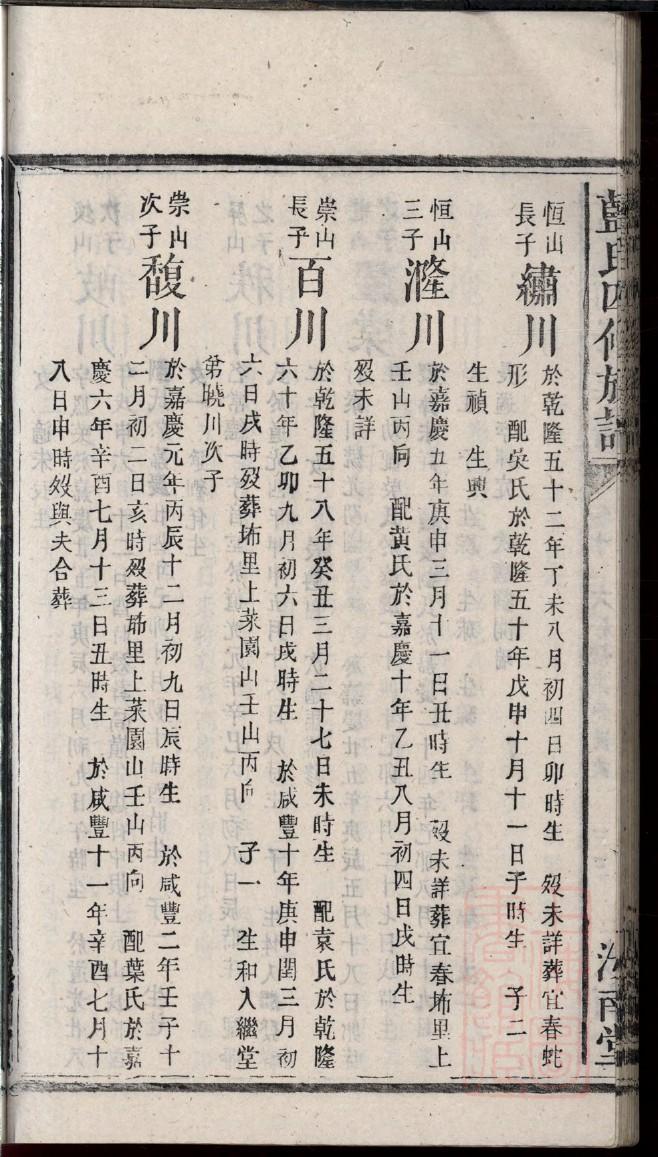 藍氏四修族譜
汝南堂
恒山長子 繡川 於乾隆五十二年丁未八月初四日卯時生 歿未詳葬宜春蛇
形 配吳氏於乾隆五十年戊申十月十一日子時生 子二
生禎 生興
恒山三子 漋川 於嘉慶九年庚申三月十一日丑時生 歿未詳葬宜春㘵里上
壬山丙向 配黃氏於嘉慶十年乙丑八月初四日戌時生
歿未詳
崇山長子 百川 於乾隆五十八年癸丑三月二十七日未時生 配袁氏於乾隆
六十年乙卯九月初六日戌時生 於咸豐十年庚申閏三月初
六日戌時歿葬㘵里上菜園山壬山丙向 子一 生和入繼堂
弟曉川次子
崇山次子 馥川 於嘉慶元年丙辰十二月初九日辰時生 於咸豐二年壬子十
二月初二日亥時歿葬㘵里上菜園山壬山丙向 配葉氏於嘉
慶六年辛酉七月十三日丑時生 於咸豐十一年辛酉七月十
八日申時歿與夫合葬